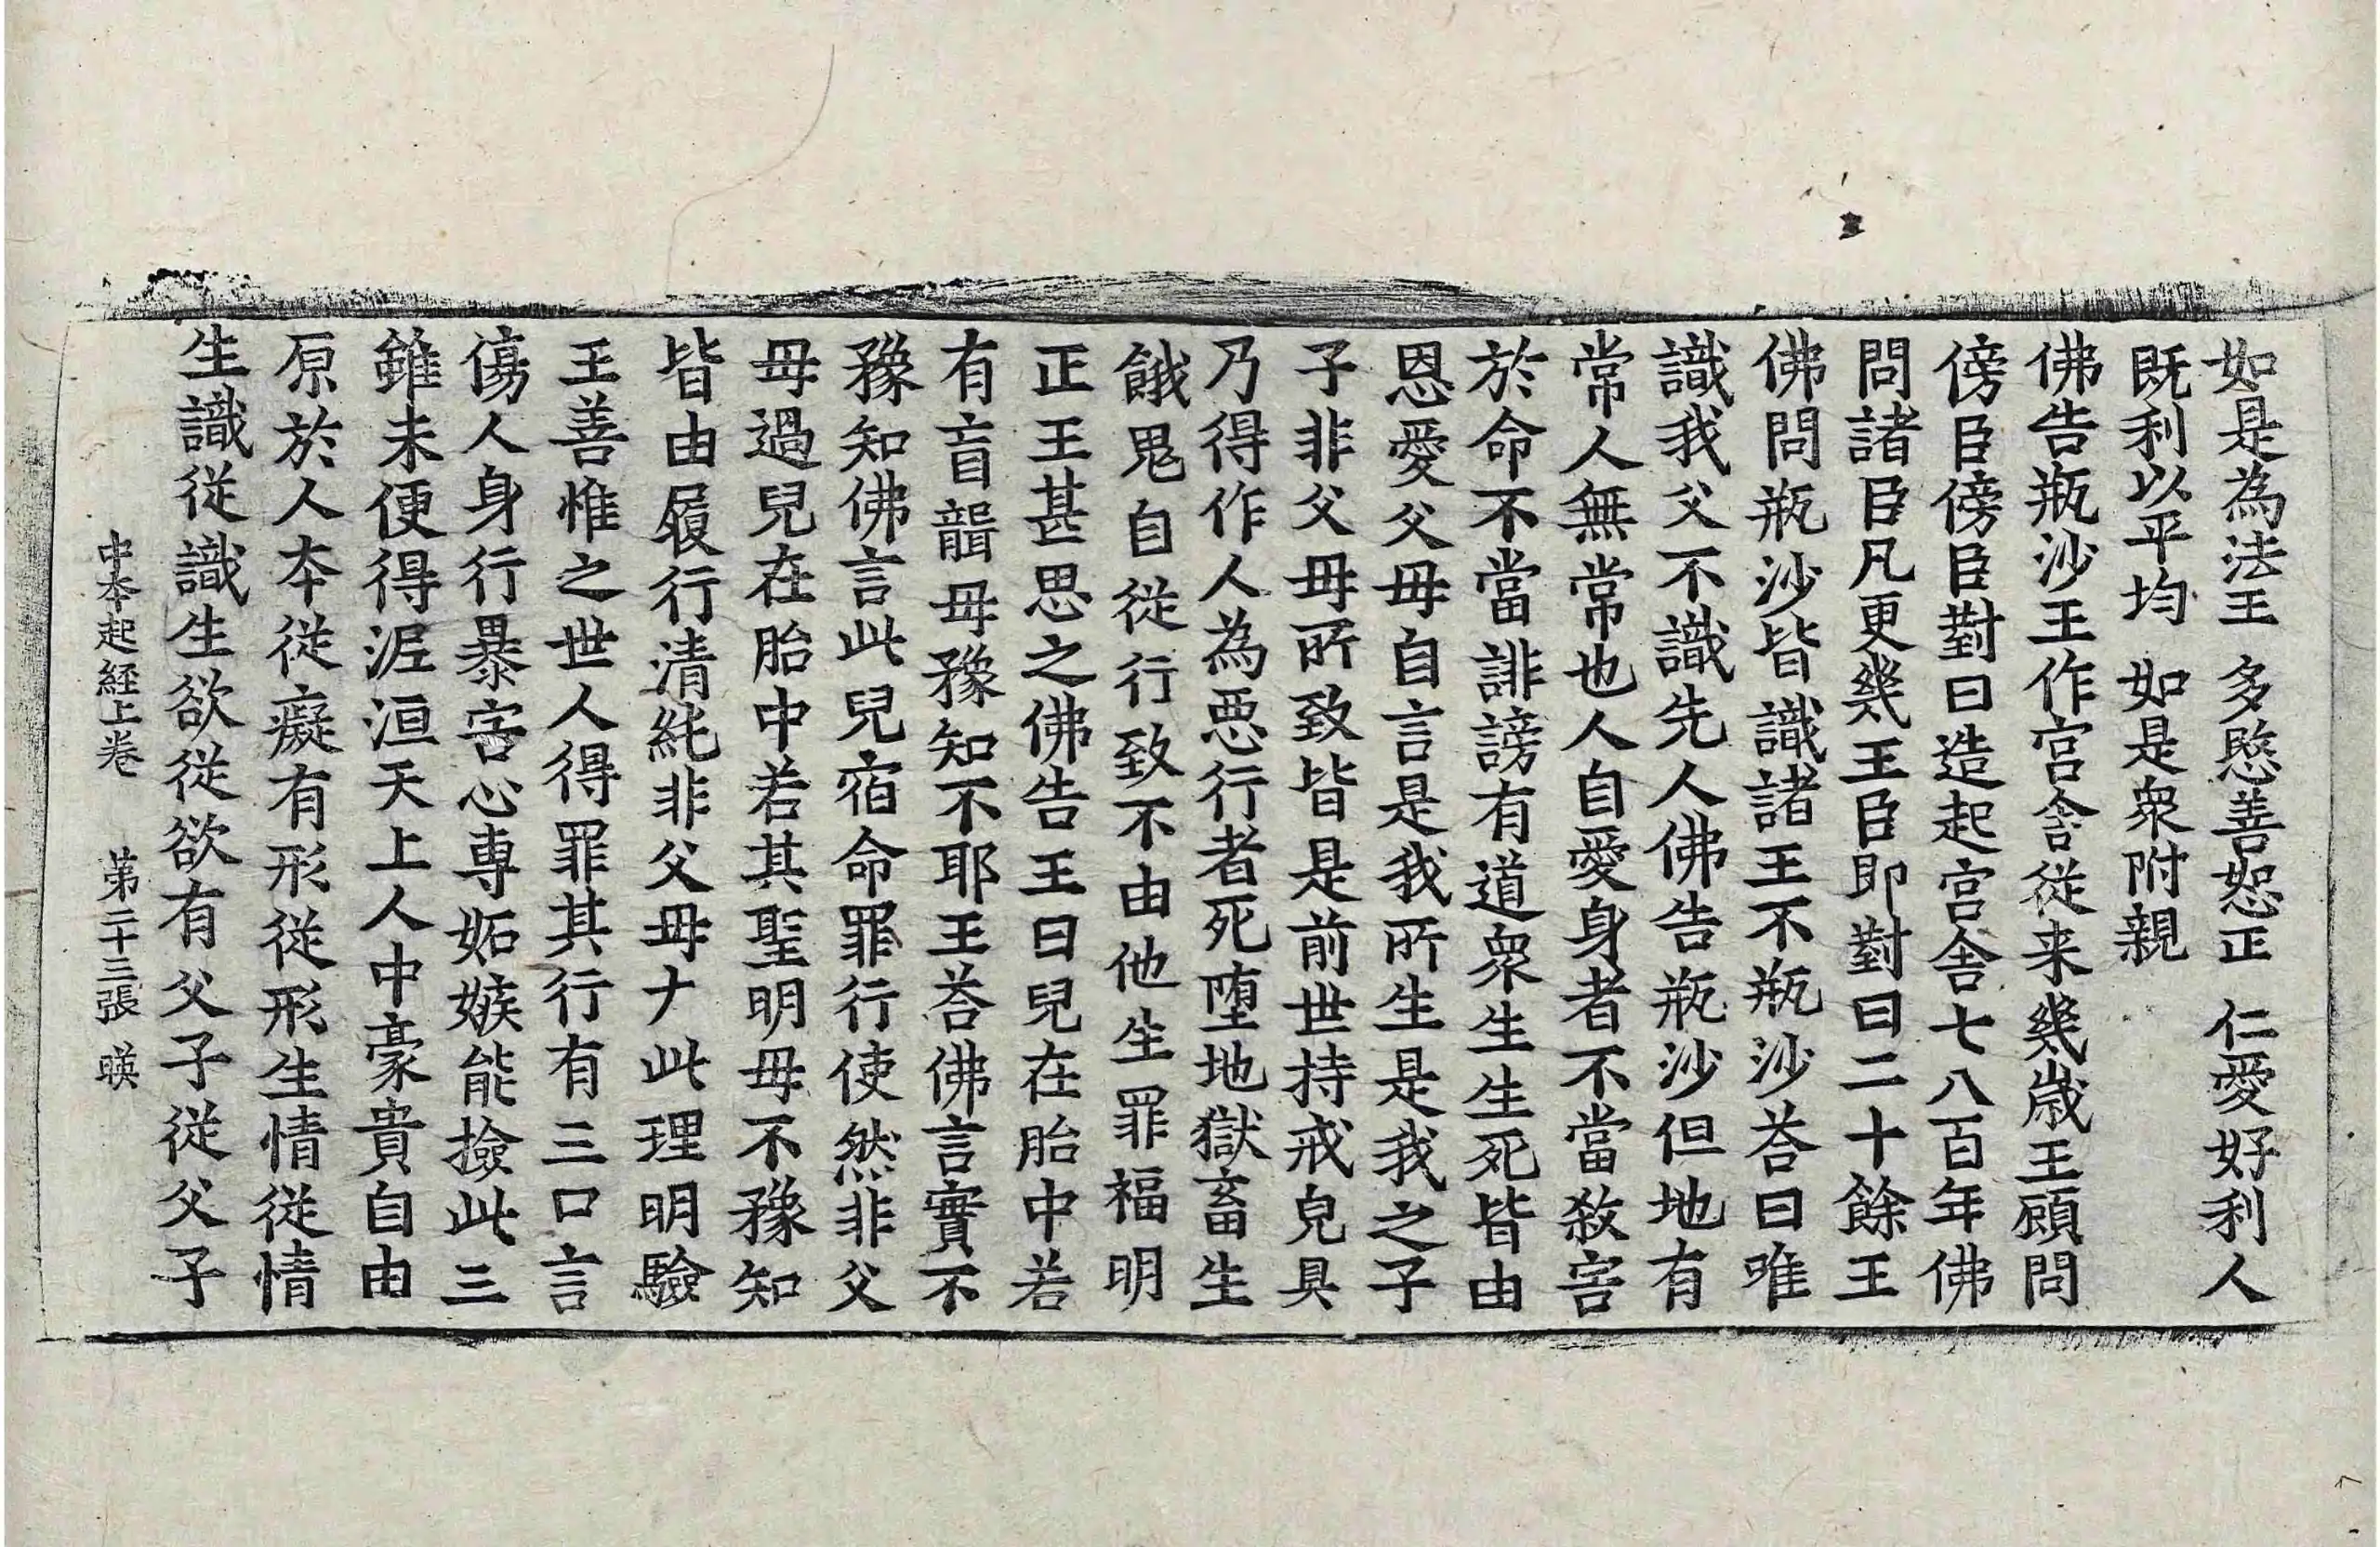 如是為法王 多愍善恕正 仁愛好利人
既利以平均 如是衆附親
佛告瓶沙王作宮舍從来幾歲王顧問
傍臣傍臣對曰造起宮舍七八百年佛
問諸臣凡更幾王臣即對曰二十餘王
佛問瓶沙皆識諸王不瓶沙荅曰唯
識我父不識先人佛告瓶沙但地有
常人無常也人自愛身者不當敘害
於命不當誹謗有道衆生生死皆由
恩愛父母自言是我所生是我之子
子非父母所致皆是前世持戒皃具
乃得作人為惡行者死墮地獄畜生
餓鬼自從行致不由他生罪福明
正王甚思之佛告王曰兒在胎中若
有盲聾母豫知不耶王荅佛言實不
豫知佛言此兒宿命罪行使然非父
母過兒在胎中若其聖明母不豫知
皆由履行清純非父母ナ此理明驗
王善惟之世人得罪其行有三口言
傷人身行暴害心專妬嫉能撿此三
雖未便得泥洹天上人中豪貴自由
原於人本從癡有形從形生情從情
生識從識生欲從欲有父子從父子
中本起經上卷 第二十三張 暎